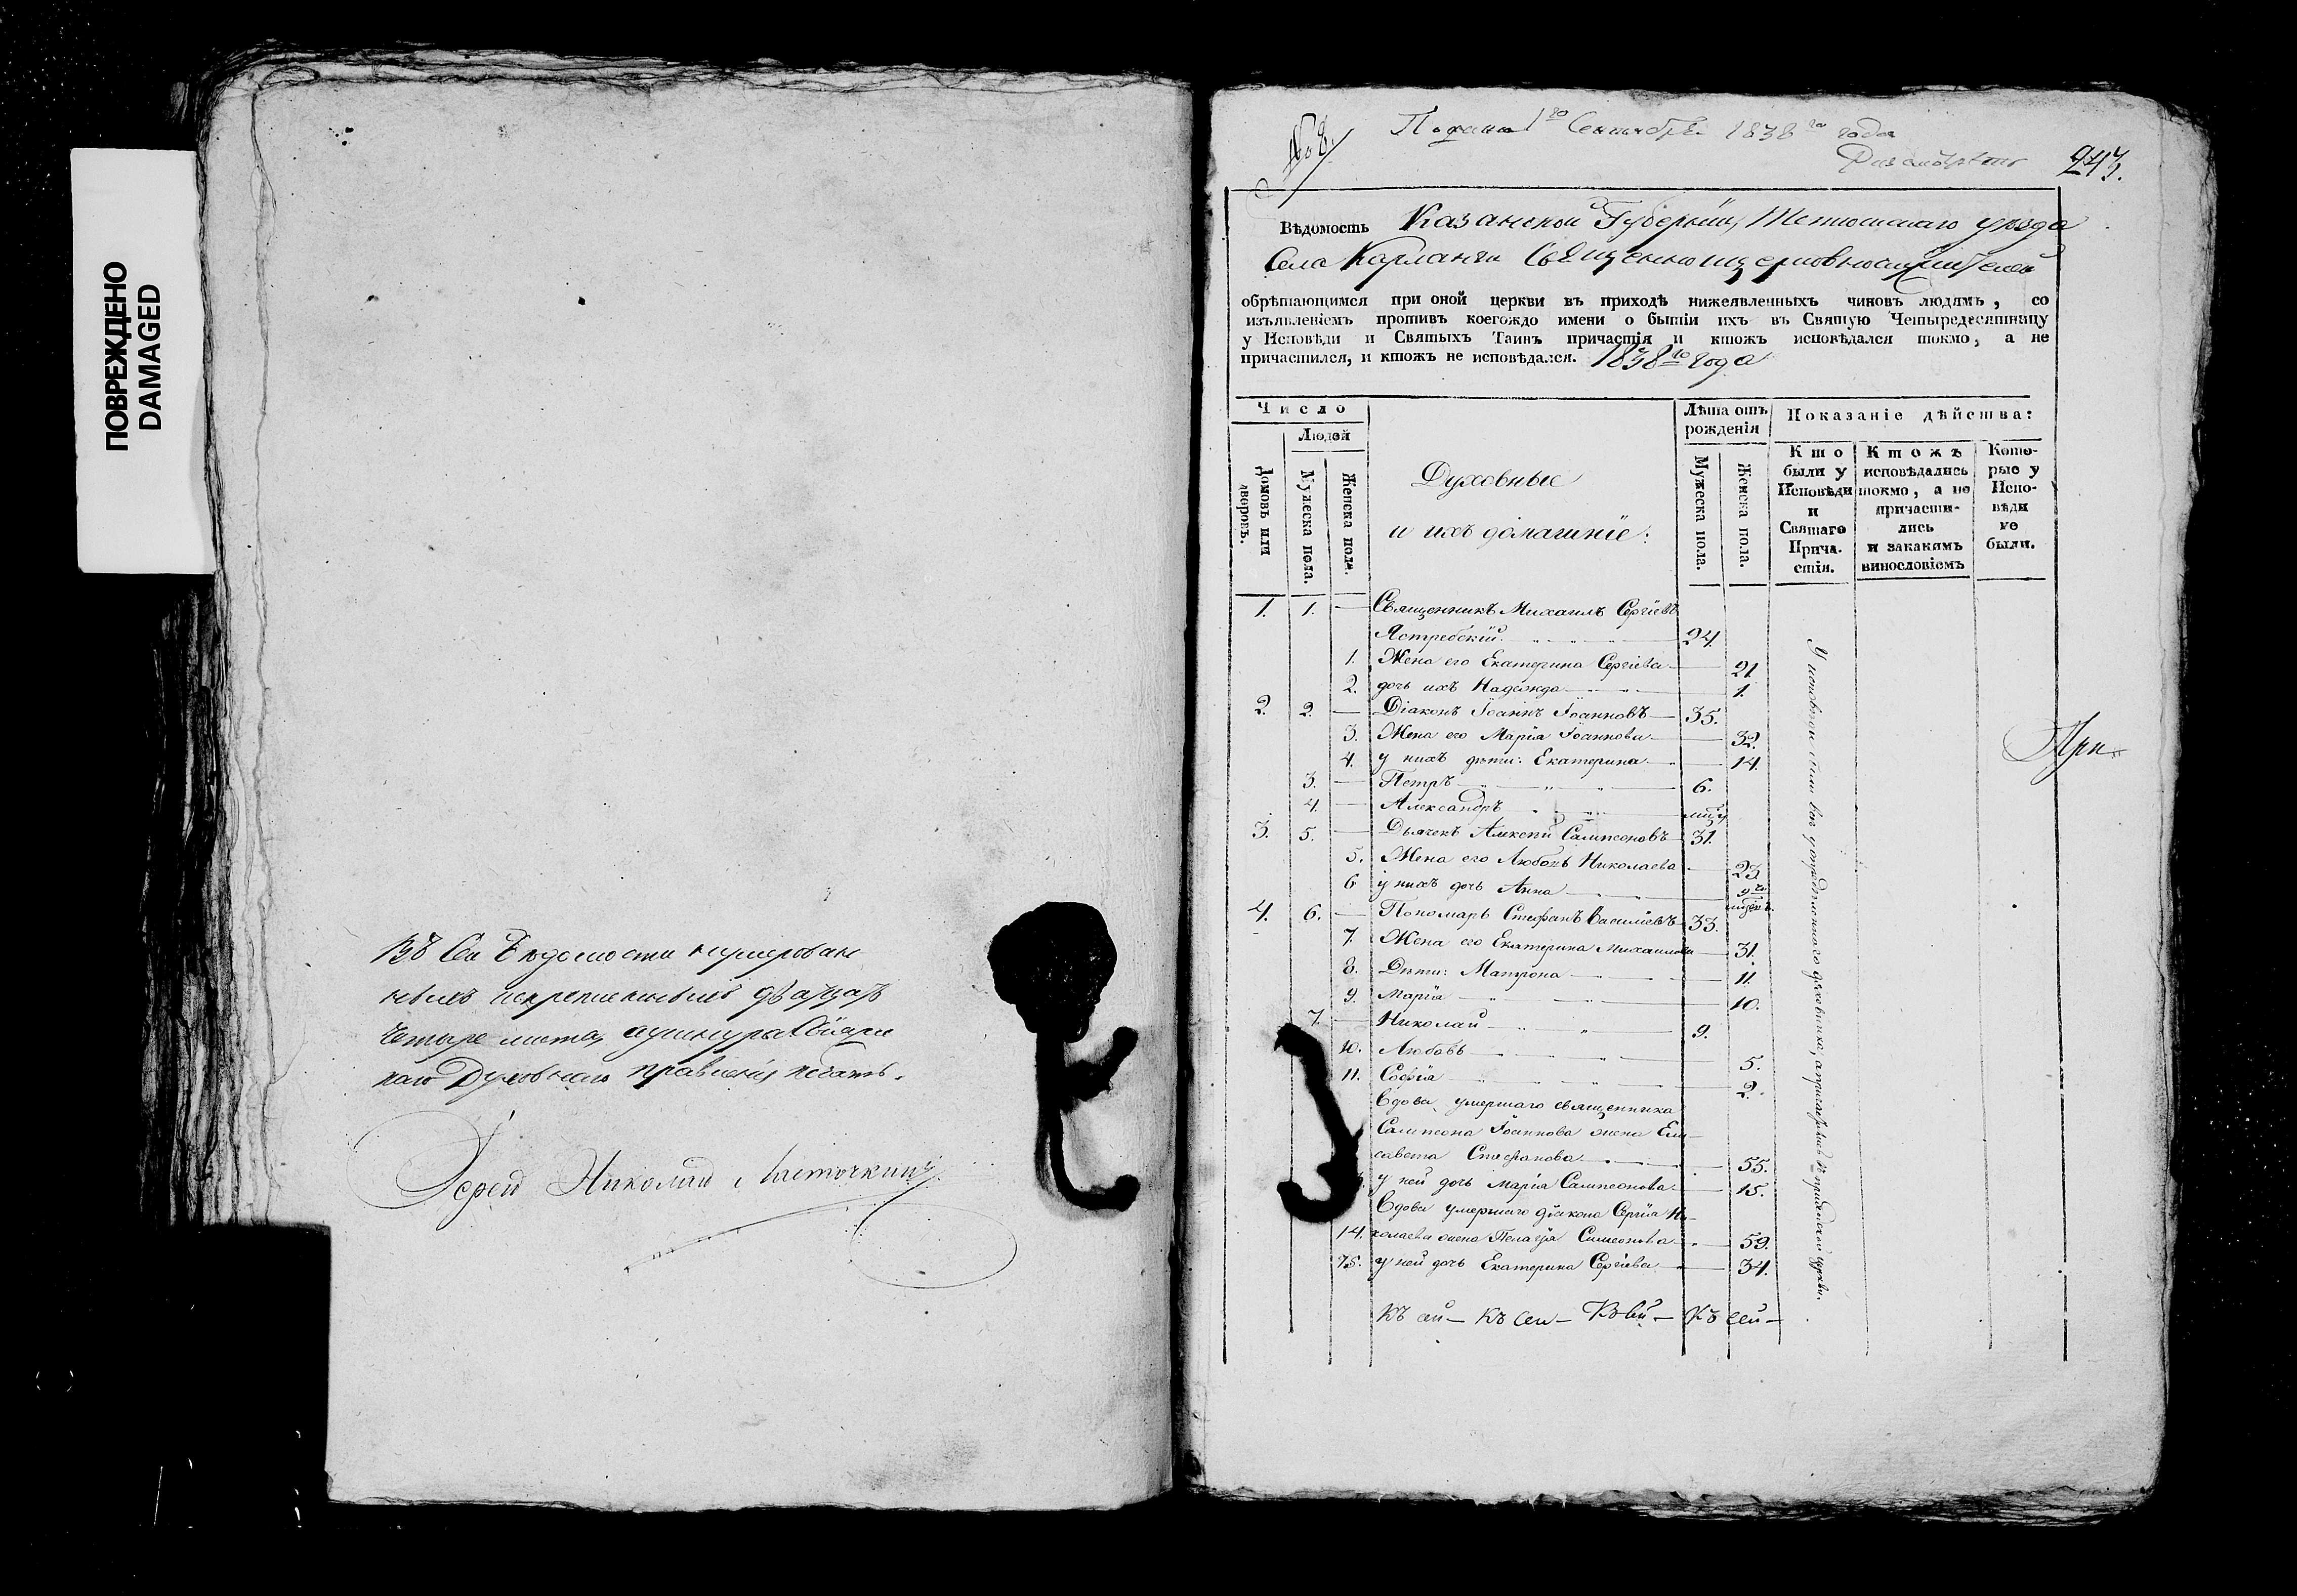 ПОВРЕЖДЕНО
DAMAGED
Въ сей ведомости нумерован
четыре листа
наго Духовнаго правленія печать.
Іерей Николай Ласточкинъ
Подана 1го Сентября 1838го года
243.
Вѣдомость Казанской Губерніи, Тетюшскаго уѣзда
Села Карланги Священноцерковнослужителей
обрѣтающимся при оной церкви въ приходѣ нижеявленныхъ чиновъ людямъ, со
изъявленіемъ противъ коегождо имени о бытіи ихъ въ Святую Четыредесятницу
у Исповѣди и Святыхъ Таинъ причастія и ктожъ исповѣдался токмо, а не
причастился, и ктожъ не исповѣдался. 1838го года
Число
Людей
Домовъ или дворовъ.
Мужеска пола.
Женска пола.
Духовные
и ихъ домашніе:
Лѣта отъ
рожденія
Мужеска пола.
Женска пола.
Показаніе дѣйства:
Кто
были у
Исповѣди
и
Святаго
Прича-
стія.
Ктожъ
исповѣдались
токмо, а не
причасти-
лись
и закакимъ
винословіемъ
Кото-
рые у
Испо-
вѣди
не
были.
1. 1. — Священникъ Михаилъ Сергіевъ
Ястребскій 24.
1. Жена его Екатерина Сергіева 21.
2. дочь ихъ Надежда 1.
2. 2. — Діаконъ Іоаннъ Іоанновъ 35.
3. Жена его Марія Іоаннова 32.
4. у нихъ дѣти: Екатерина 14.
3. — Петръ 6.
4. — Александръ
3. 5. — Дьячекъ Алексѣй Сампсоновъ 31.
5. Жена его Любовь Николаева 23.
6 у нихъ дочь Анна
4. 6. — Пономарь Стефанъ Василіевъ 33.
7. Жена его Екатерина Михаилова 31.
8. Дѣти: Матрона 11.
9. Марія 10.
7. — Николай 9.
10. Любовь 5.
11. Софія 2.
Вдова умершаго священника
Сампсона Іоаннова жена Ели-
савета Стефанова 55.
у ней дочь Марія Сампсонова 15.
Вдова умершаго діакона Сергія Ни-
14. колаева жена Пелагія Симеонова 59.
15. у ней дочь Екатерина Сергіева 34.
Къ сей — Къ сей — Къ сей — Къ сей —
У исповѣди были
При-